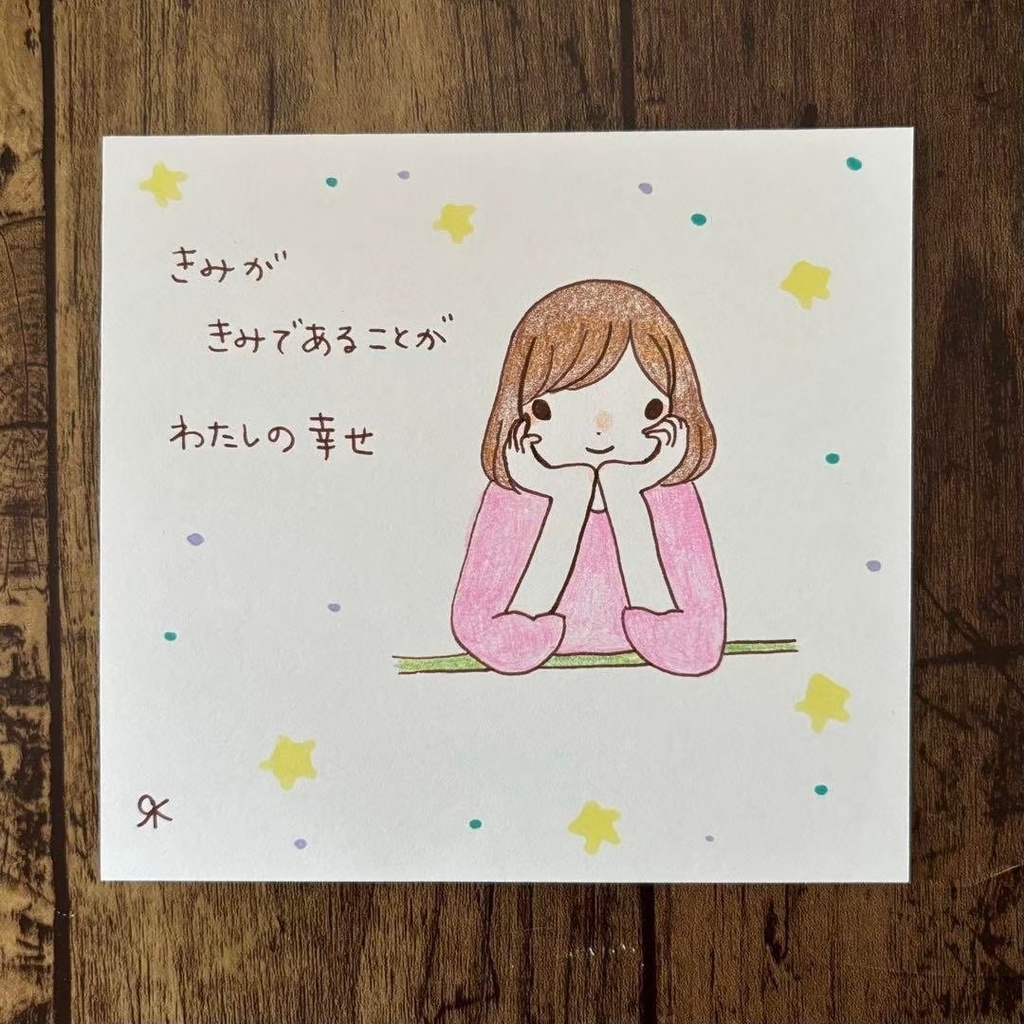 きみが
きみであることが
わたしの幸せ